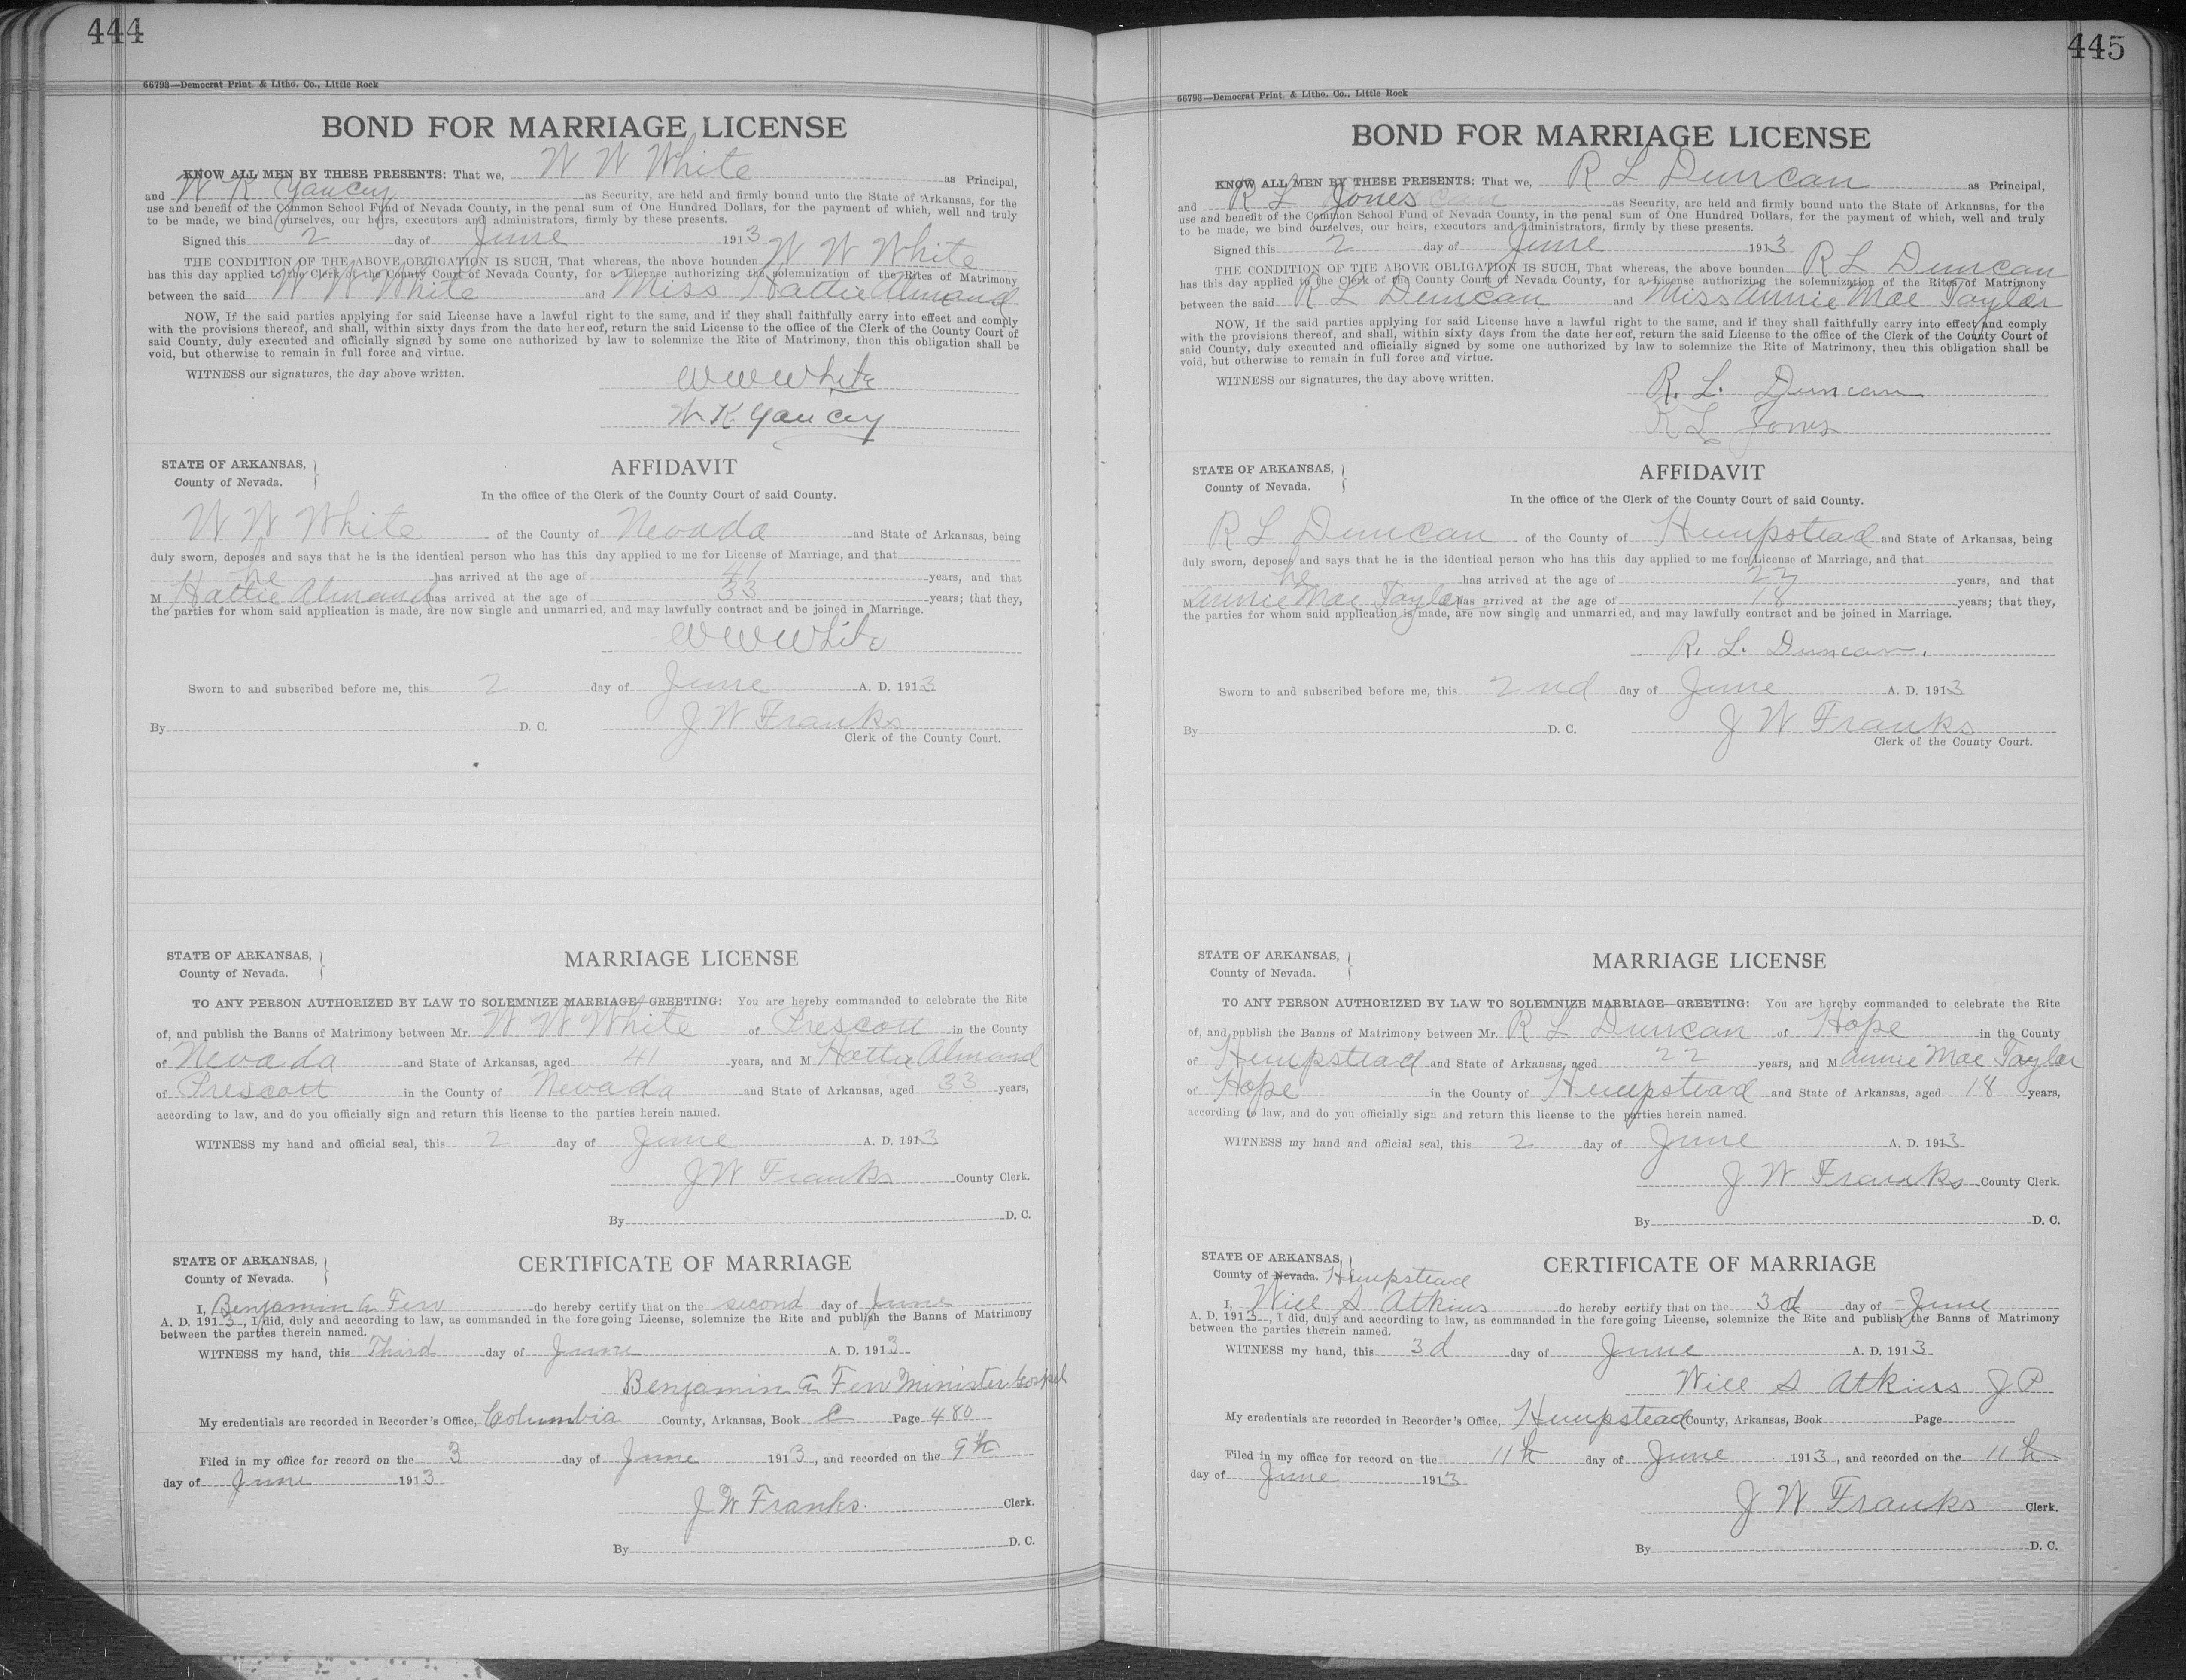 444
66793—Democrat Print. & Litho. Co., Little Rock
BOND FOR MARRIAGE LICENSE
KNOW ALL MEN BY THESE PRESENTS: That we, W W White as Principal,
and W K Yancey as Security, are held and firmly bound unto the State of Arkansas, for the
use and benefit of the Common School Fund of Nevada County, in the penal sum of One Hundred Dollars, for the payment of which, well and truly
to be made, we bind ourselves, our heirs, executors and administrators, firmly by these presents.
Signed this 2 day of June 1913
THE CONDITION OF THE ABOVE OBLIGATION IS SUCH, That whereas, the above bounden W W White
has this day applied to the Clerk of the County Court of Nevada County, for a License authorizing the solemnization of the Rites of Matrimony
between the said W W White and Miss Hattie Almand
NOW, If the said parties applying for said License have a lawful right to the same, and if they shall faithfully carry into effect and comply
with the provisions thereof, and shall, within sixty days from the date hereof, return the said License to the office of the Clerk of the County Court of
said County, duly executed and officially signed by some one authorized by law to solemnize the Rite of Matrimony, then this obligation shall be
void, but otherwise to remain in full force and virtue.
WITNESS our signatures, the day above written.
W W White
W. K. Yancey
STATE OF ARKANSAS,
County of Nevada.
AFFIDAVIT
In the office of the Clerk of the County Court of said County.
W W White of the County of Nevada and State of Arkansas, being
duly sworn, deposes and says that he is the identical person who has this day applied to me for License of Marriage, and that
he has arrived at the age of 41 years, and that
M Hattie Almand has arrived at the age of 33 years; that they,
the parties for whom said application is made, are now single and unmarried, and may lawfully contract and be joined in Marriage.
W W White
Sworn to and subscribed before me, this 2 day of June A. D. 1913
By D. C. J W Franks
Clerk of the County Court.
STATE OF ARKANSAS,
County of Nevada.
MARRIAGE LICENSE
TO ANY PERSON AUTHORIZED BY LAW TO SOLEMNIZE MARRIAGE—GREETING: You are hereby commanded to celebrate the Rite
of, and publish the Banns of Matrimony between Mr. W W White of Prescott in the County
of Nevada and State of Arkansas, aged 41 years, and M Hattie Almand
of Prescott in the County of Nevada and State of Arkansas, aged 33 years,
according to law, and do you officially sign and return this license to the parties herein named.
WITNESS my hand and official seal, this 2 day of June A. D. 1913
J W Franks County Clerk.
By D. C.
STATE OF ARKANSAS,
County of Nevada.
CERTIFICATE OF MARRIAGE
I, Benjamin A Few do hereby certify that on the second day of June
A. D. 1913, I did, duly and according to law, as commanded in the foregoing License, solemnize the Rite and publish the Banns of Matrimony
between the parties therein named.
WITNESS my hand, this Third day of June A. D. 1913
Benjamin A Few Minister Gospel
My credentials are recorded in Recorder's Office, Columbia County, Arkansas, Book C Page 480
Filed in my office for record on the 3 day of June 1913, and recorded on the 9th
day of June 1913
J W Franks. Clerk.
By D. C.
445
66793—Democrat Print. & Litho. Co., Little Rock
BOND FOR MARRIAGE LICENSE
KNOW ALL MEN BY THESE PRESENTS: That we, R L Duncan as Principal,
and R L Jones as Security, are held and firmly bound unto the State of Arkansas, for the
use and benefit of the Common School Fund of Nevada County, in the penal sum of One Hundred Dollars, for the payment of which, well and truly
to be made, we bind ourselves, our heirs, executors and administrators, firmly by these presents.
Signed this 2 day of June 1913
THE CONDITION OF THE ABOVE OBLIGATION IS SUCH, That whereas, the above bounden R L Duncan
has this day applied to the Clerk of the County Court of Nevada County, for a License authorizing the solemnization of the Rites of Matrimony
between the said R L Duncan and Miss Annie Mae Taylor
NOW, If the said parties applying for said License have a lawful right to the same, and if they shall faithfully carry into effect and comply
with the provisions thereof, and shall, within sixty days from the date hereof, return the said License to the office of the Clerk of the County Court of
said County, duly executed and officially signed by some one authorized by law to solemnize the Rite of Matrimony, then this obligation shall be
void, but otherwise to remain in full force and virtue.
WITNESS our signatures, the day above written.
R. L. Duncan
R L Jones
STATE OF ARKANSAS,
County of Nevada.
AFFIDAVIT
In the office of the Clerk of the County Court of said County.
R L Duncan of the County of Hempstead and State of Arkansas, being
duly sworn, deposes and says that he is the identical person who has this day applied to me for License of Marriage, and that
he has arrived at the age of 22 years, and that
M Annie Mae Taylor has arrived at the age of 18 years; that they,
the parties for whom said application is made, are now single and unmarried, and may lawfully contract and be joined in Marriage.
R. L. Duncan.
Sworn to and subscribed before me, this 2nd day of June A. D. 1913
By D. C. J W Franks
Clerk of the County Court.
STATE OF ARKANSAS,
County of Nevada.
MARRIAGE LICENSE
TO ANY PERSON AUTHORIZED BY LAW TO SOLEMNIZE MARRIAGE—GREETING: You are hereby commanded to celebrate the Rite
of, and publish the Banns of Matrimony between Mr. R L Duncan of Hope in the County
of Hempstead and State of Arkansas, aged 22 years, and M Annie Mae Taylor
of Hope in the County of Hempstead and State of Arkansas, aged 18 years,
according to law, and do you officially sign and return this license to the parties herein named.
WITNESS my hand and official seal, this 2 day of June A. D. 1913
J W Franks County Clerk.
By D. C.
STATE OF ARKANSAS,
County of Nevada. Hempstead
CERTIFICATE OF MARRIAGE
I, Will S Atkins do hereby certify that on the 3d day of June
A. D. 1913, I did, duly and according to law, as commanded in the foregoing License, solemnize the Rite and publish the Banns of Matrimony
between the parties therein named.
WITNESS my hand, this 3d day of June A. D. 1913
Will S Atkins J P
My credentials are recorded in Recorder's Office, Hempstead County, Arkansas, Book Page
Filed in my office for record on the 11th day of June 1913, and recorded on the 11th
day of June 1913
J W Franks Clerk.
By D. C.